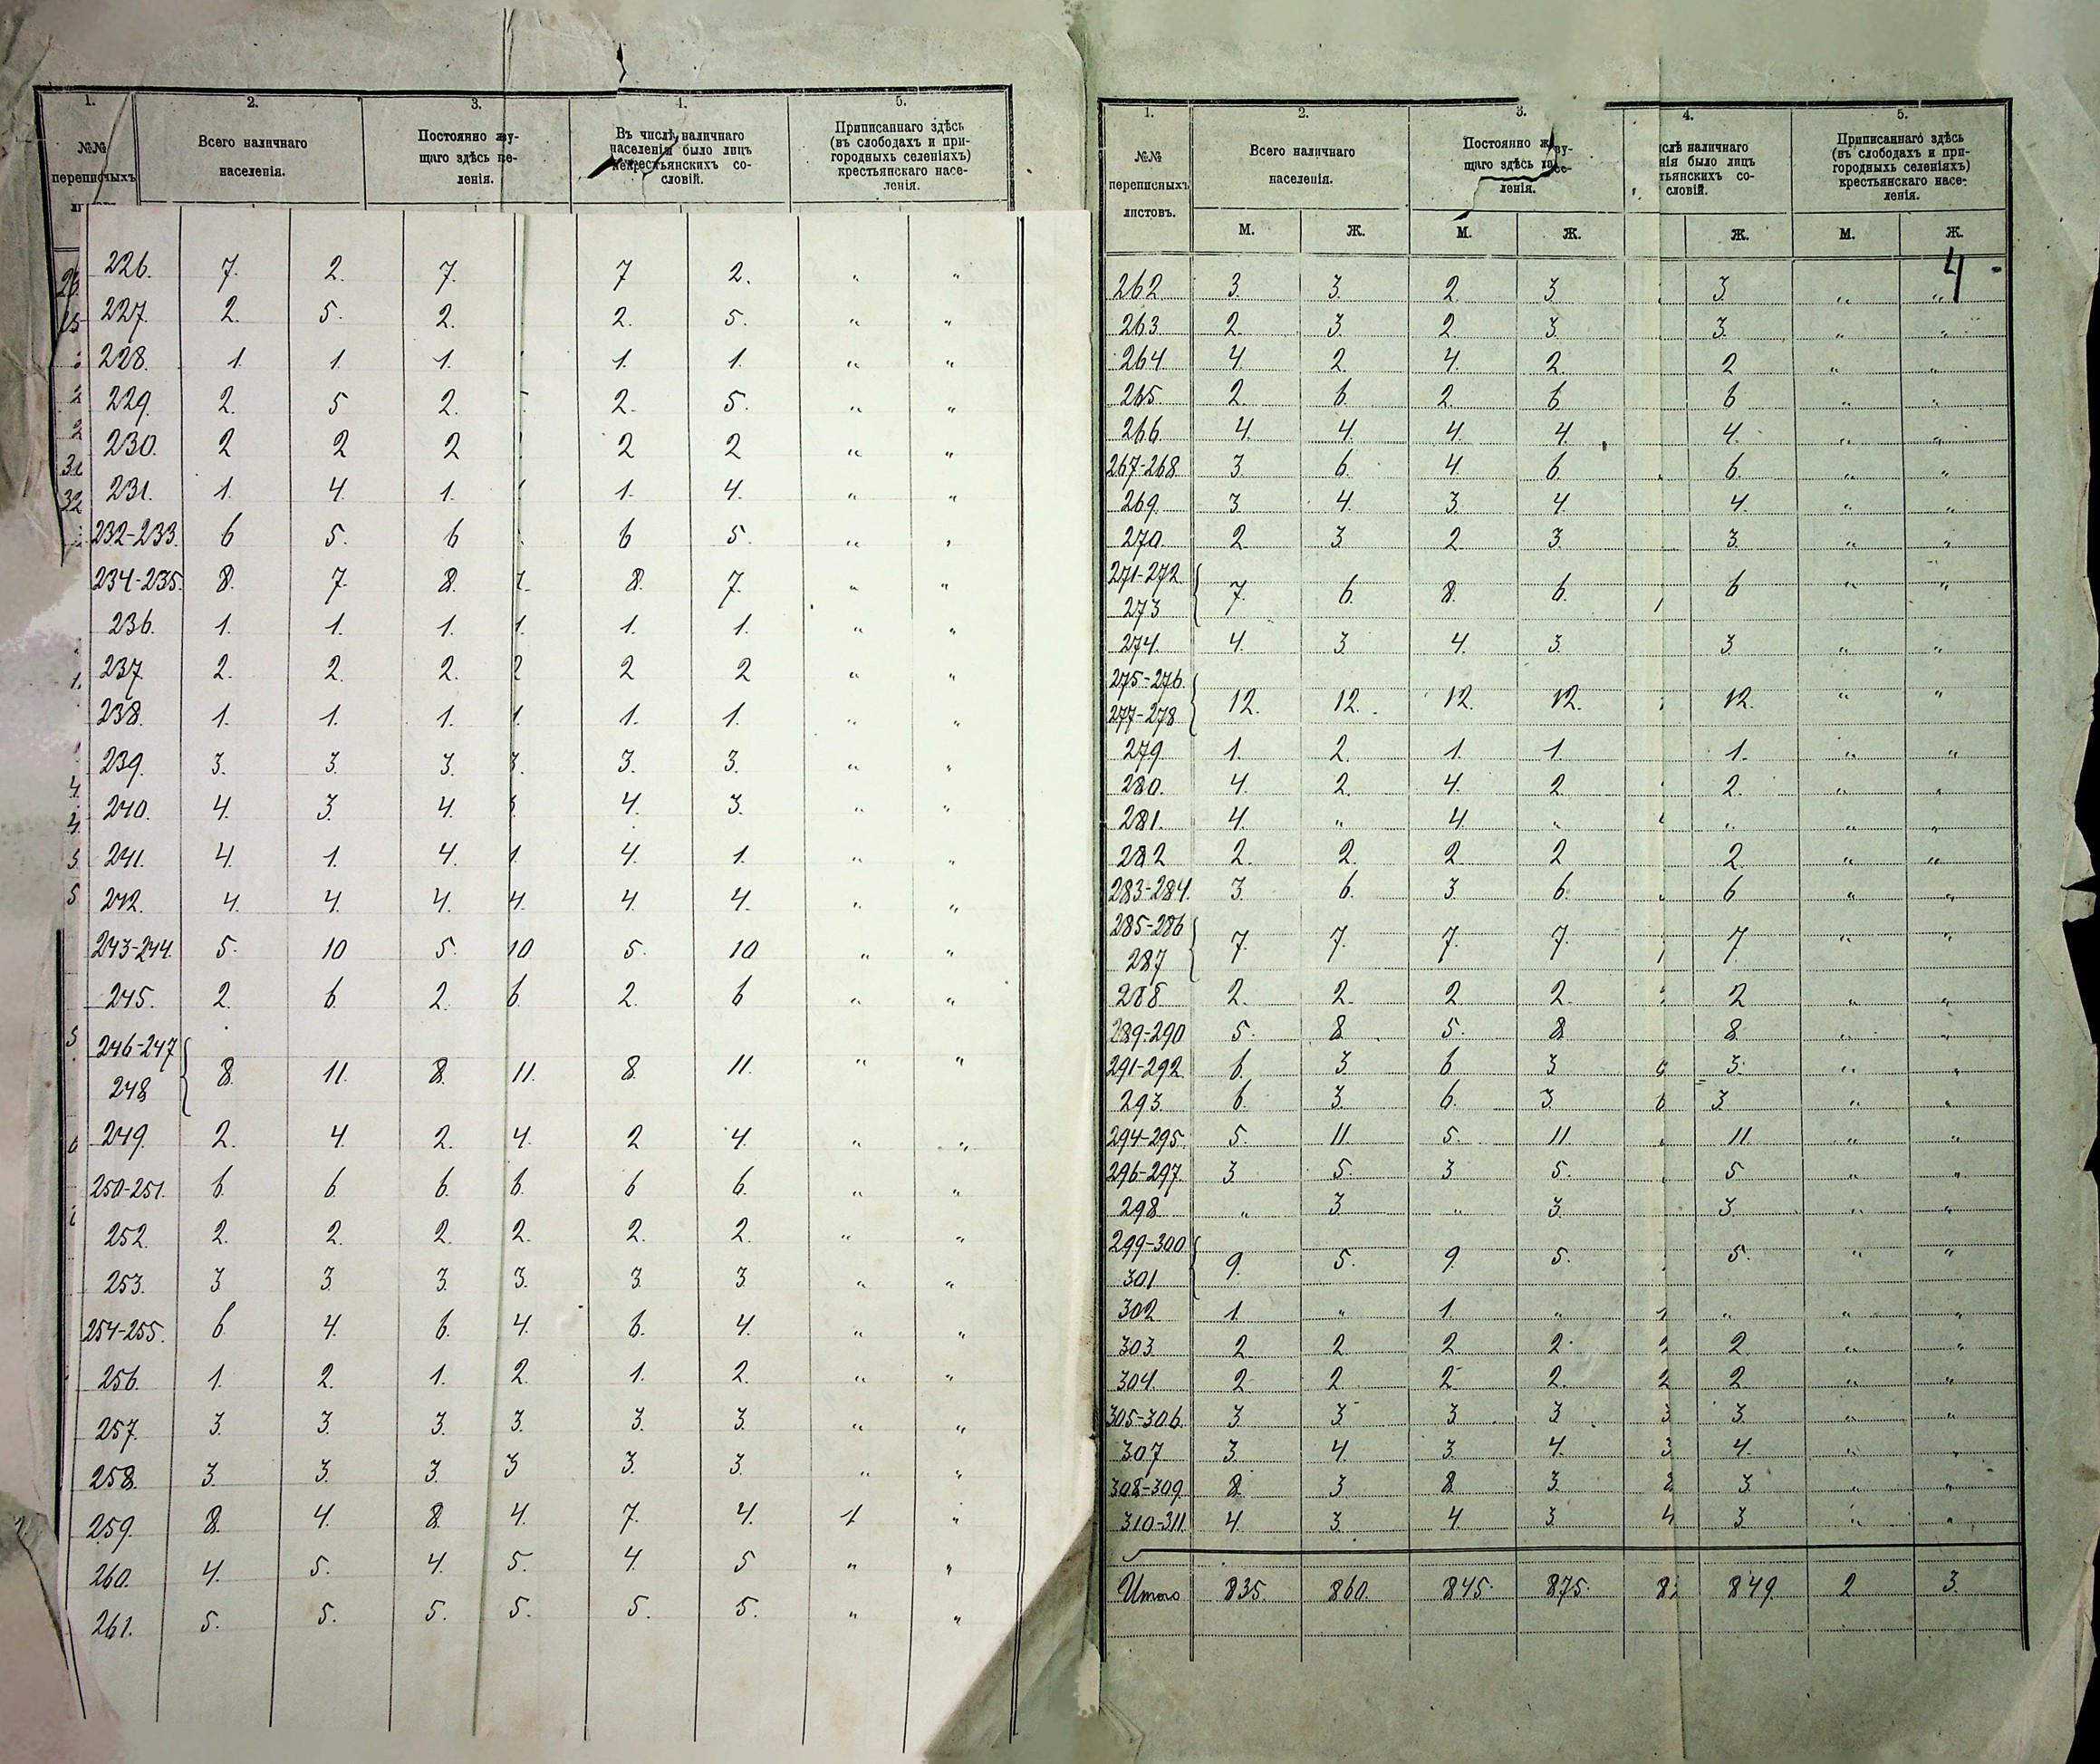 1. 2. 3. 4. 5.
№№ Всего наличнаго Постоянно Въ числѣ наличнаго Приписаннаго здѣсь
населенія было лицъ (въ слободахъ и при-
переписныхъ населенія. щаго здѣсь некрестьянскихъ со- городныхъ селеніяхъ)
ленія. словій. крестьянскаго насе-
ленія.
226. 7. 2. 7. 7 2. " "
227. 2. 5. 2. 2. 5. " "
228. 1. 1. 1. 1. 1. " "
229. 2. 5 2. 2. 5. " "
230. 2 2 2 2 2 " "
231. 1. 4. 1. 1. 4. " "
232-233. 6 5. 6 6 5. " "
234-235. 8. 7. 8. 7. 8. 7. " "
236. 1. 1. 1. 1. 1. 1. " "
237. 2. 2. 2. 2 2 2 " "
238. 1. 1. 1. 1. 1. 1. " "
239. 3. 3. 3. 3. 3. 3. " "
240. 4. 3. 4. 3 4. 3. " "
241. 4. 1. 4. 1. 4. 1. " "
242. 4. 4. 4. 4. 4. 4. " "
243-244. 5. 10 5. 10 5. 10 " "
245. 2. 6. 2. 6. 2. 6 " "
246-247
248 8. 11. 8. 11. 8. 11. " "
249. 2. 4. 2. 4. 2 4. " "
250-251. 6. 6. 6. 6. 6 6. " "
252. 2. 2. 2. 2. 2. 2. " "
253. 3 3. 3. 3. 3. 3 " "
254-255. 6 4. 6. 4. 6. 4. " "
256. 1. 2. 1. 2. 1. 2. " "
257. 3. 3. 3. 3. 3. 3. " "
258. 3. 3. 3. 3 3. 3. " "
259. 8. 4. 8. 4. 7. 4. 1 "
260. 4. 5. 4. 5. 4. 5 " "
261. 5. 5. 5. 5. 5. 5. " "
1. 2. 3. 4. 5.
№№ Всего наличнаго Постоянно наличнаго Приписаннаго здѣсь
было лицъ (въ слободахъ и при-
переписныхъ населенія. щаго здѣсь со- городныхъ селеніяхъ)
ленія. словій. крестьянскаго насе-
листовъ. ленія.
М. Ж. М. Ж. Ж. М. Ж.
4
262 3. 3. 2. 3. 3. " "
263 2. 3. 2. 3. 3. " "
264 4. 2. 4. 2. 2 " "
265. 2. 6. 2. 6 6 " "
266. 4. 4. 4. 4. 4. " "
267-268 3. 6. 4. 6. 6. " "
269. 3 4. 3. 4. 4. " "
270. 2 3 2 3. 3. " "
271-272
273 7. 6. 8. 6. 6 " "
274. 4. 3. 4. 3. 3 " "
275-276.
277-278 12. 12. 12. 12. 12. " "
279. 1. 2. 1. 1. 1. " "
280. 4. 2. 4. 2 2. " "
281. 4. " 4. " " " "
282 2. 2. 2. 2 2 " "
283-284. 3. 6. 3. 6. 6 " "
285-286
287 7. 7. 7. 7. 7. " "
288. 2. 2. 2 2. 2 " "
289-290 5. 8. 5. 8 8. " "
291-292. 6. 3 6 3 3. " "
293. 6. 3. 6. 3. 6 3. " "
294-295. 5. 11. 5. 11. 11. " "
296-297. 3 5. 3 5. 5 " "
298 " 3. " 3. 3. " "
299-300
301 9. 5. 9. 5. 5. " "
302 1. " 1. " 1 " " "
303 2 2. 2 2. 2 2. " "
304. 2 2 2 2. 2 2 " "
305-306. 3 3 3. 3 3. 3. " "
307 3. 4. 3. 4. 3 4. " "
308-309. 8. 3 8 3. 3. " "
310-311. 4. 3. 4. 3 4 3 " "
Итого 835. 860. 845. 875. 849. 2 3.